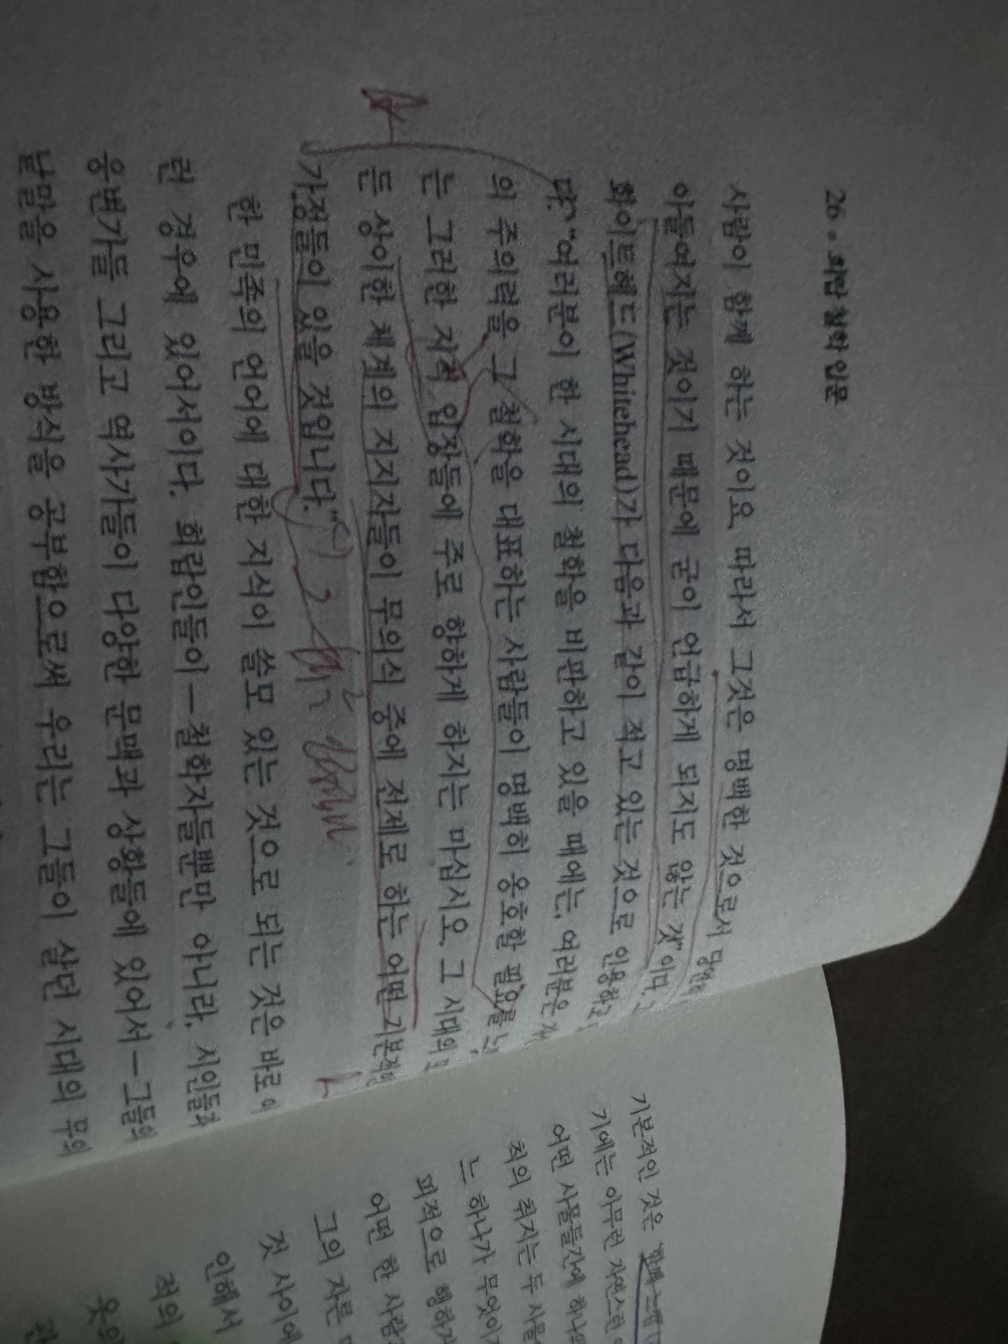 26 · 희랍 철학 입문
사람이 함께 하는 것이요, 따라서 그것은 명백한 것으로서
아들여지는 것이기 때문에 굳이 언급하게 되지도 않는 것"이다.
화이트헤드(Whitehead)가 다음과 같이 적고 있는 것으로 인용하고
다. "여러분이 한 시대의 철학을 비판하고 있을 때에는, 여러분은
의 주의력을 그 철학을 대표하는 사람들이 명백히 옹호할 필요를
는 그러한 지적 입장들에 주로 향하게 하지는 마십시오. 그 시대의
든 상이한 체계의 지지자들이 무의식 중에 전제로 하는 어떤 기본적인
가정들이 있을 것입니다."
한 민족의 언어에 대한 지식이 쓸모 있는 것으로 되는 것은 바로
런 경우에 있어서이다. 희랍인들이—철학자들뿐만 아니라, 시인들과
웅변가들 그리고 역사가들이 다양한 문맥과 상황들에 있어서—그들의
낱말을 사용한 방식을 공부함으로써 우리는 그들이 살던 시대의 무의
기본적인 것은
기에는 아무런 자연스런
어떤 사물들간에 하나의
척의 취지는 두 사물
느 하나가 무엇이
괴적으로 행하
어떤 한 사람
그의 자른
것 사이에
인해서
적의